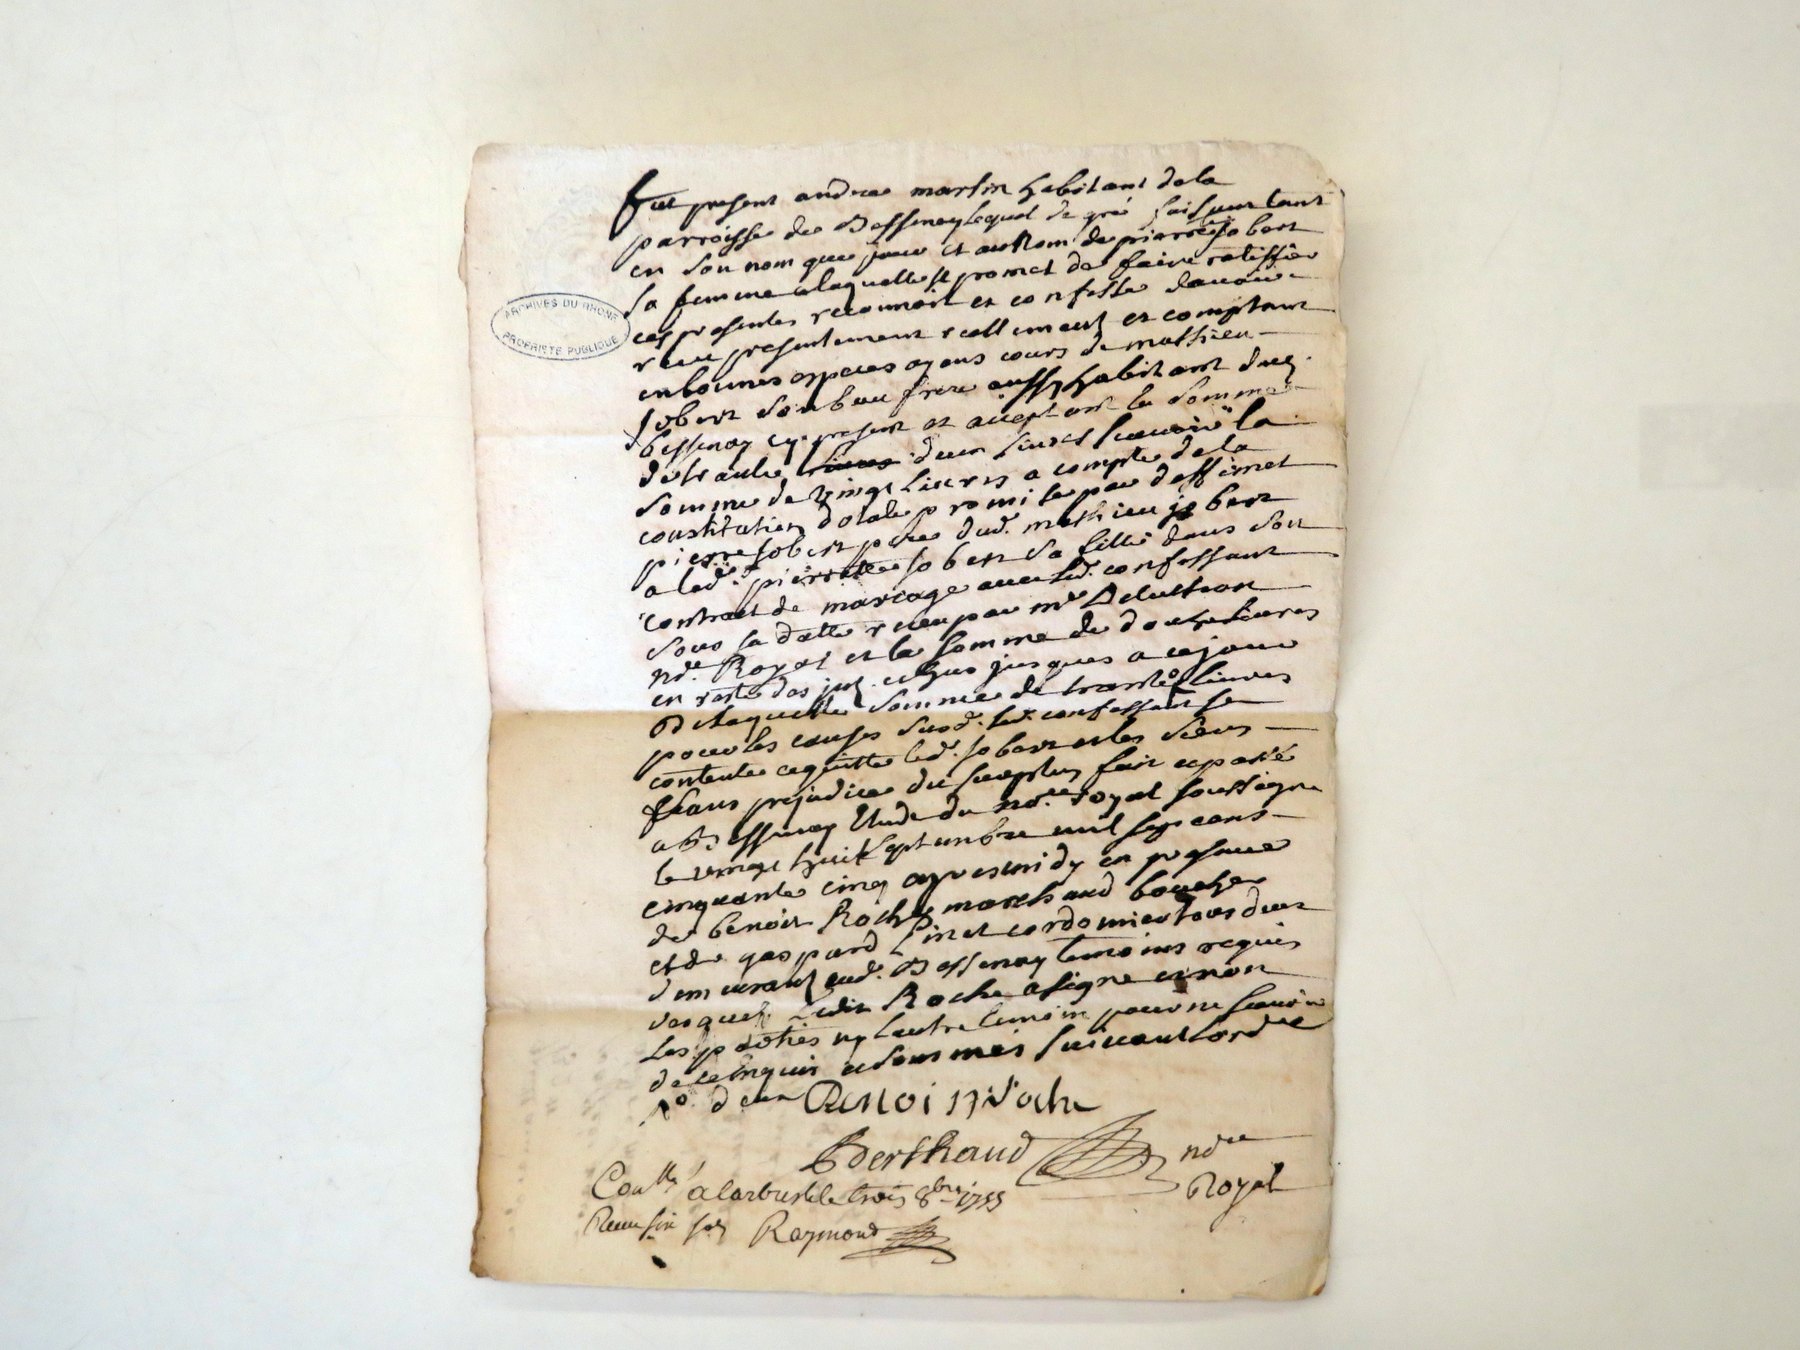 fut present andree martin habitant dela
parroisse de Bessenay lequel de gré faisant tant
en son nom que pour et au Nom de pierrette Jobert
sa femme a laquelle il promet de faire ratiffier
ces presentes reconnoit et confesse davoir
reeu presentement reellement et comptant
en bonnes especes ayans cours de mathieu
Jobert son beau frere aussy habitant dud.
bessenay cy present et acceptant la somme
de trante deux Livres scavoir la
somme de vingt Livres a compte de la
constitution dotale promise par deffunct
pierre Jobert pere dud. mathieu jobert
a lad. pierrette Jobert sa fille dans son
contract de mariage avec led. confessant
sous sa datte receu par me Delutson
nore. Royal et la somme de douze livres
en reste des jusques a ce jour
De laquelle somme de trante deux livres
pour les causes susd. led. confessant se
contente et quitte led. Jobert et les siens
sans prejudice du surplus fait et passé
a Bessenay Etude du nore. royal soussigne
le vingt huit septembre mil sept cens
cinquante cinq apres midy en presence
de benoit Roche marchand boucher
et de gaspard Pinet cordonnier tous deux
demeurant aud. Bessenay temoins requis
desquels Ledit Roche a signe et non
Les parties ny lautre temoin pour ne scavoir
de ce Enquis et sommés suivant lordre
No. deux Benoit Roche
Berthaud nore
Royal
Conllé a larbresle le trois 8bre 1755
Receu six sols Raymond
ARCHIVES DU RHONE
PROPRIETE PUBLIQUE